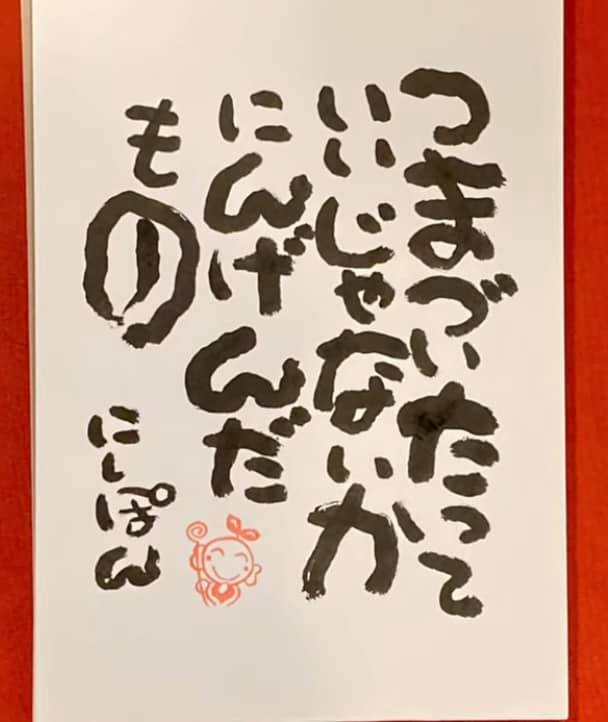 つまづいたって
いいじゃないか
にんげんだ
もの
にしぽん